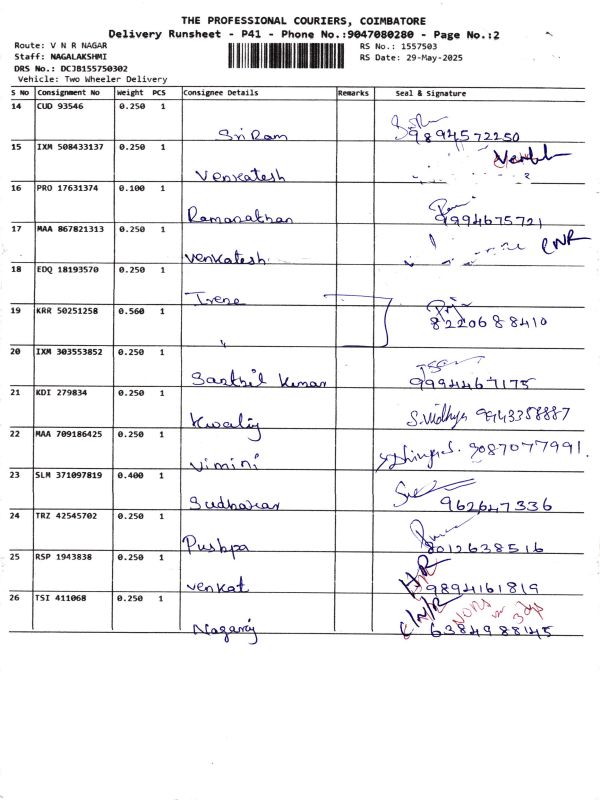 THE PROFESSIONAL COURIERS, COIMBATORE
Delivery Runsheet - P41 - Phone No.:9047080280 - Page No.:2
Route: V N R NAGAR
RS No.: 1557503
Staff: NAGALAKSHMI
RS Date: 29-May-2025
DRS No.: DCJB155750302
Vehicle: Two Wheeler Delivery
S No Consignment No Weight PCS Consignee Details Remarks Seal & Signature
14 CUD 93546 0.250 1
Sri Ram 9894572250
15 IXM 508433137 0.250 1
Venkatesh
16 PRO 17631374 0.100 1
Ramanathan 9994675721
17 MAA 867821313 0.250 1
Venkatesh CNR
18 EDQ 18193570 0.250 1
Irene
19 KRR 50251258 0.560 1
" 8220688410
20 IXM 303553852 0.250 1
Senthil Kumar 9994467175
21 KDI 279834 0.250 1
Kwality S. Vidhya 9943358887
22 MAA 709186425 0.250 1
Vimini 9087077991
23 SLM 371097819 0.400 1
Sudhakar 962647336
24 TRZ 42545702 0.250 1
Pushpa 8012638516
25 RSP 1943838 0.250 1
Venkat 9894161819
26 TSI 411068 0.250 1
Nagaraj 6384988145